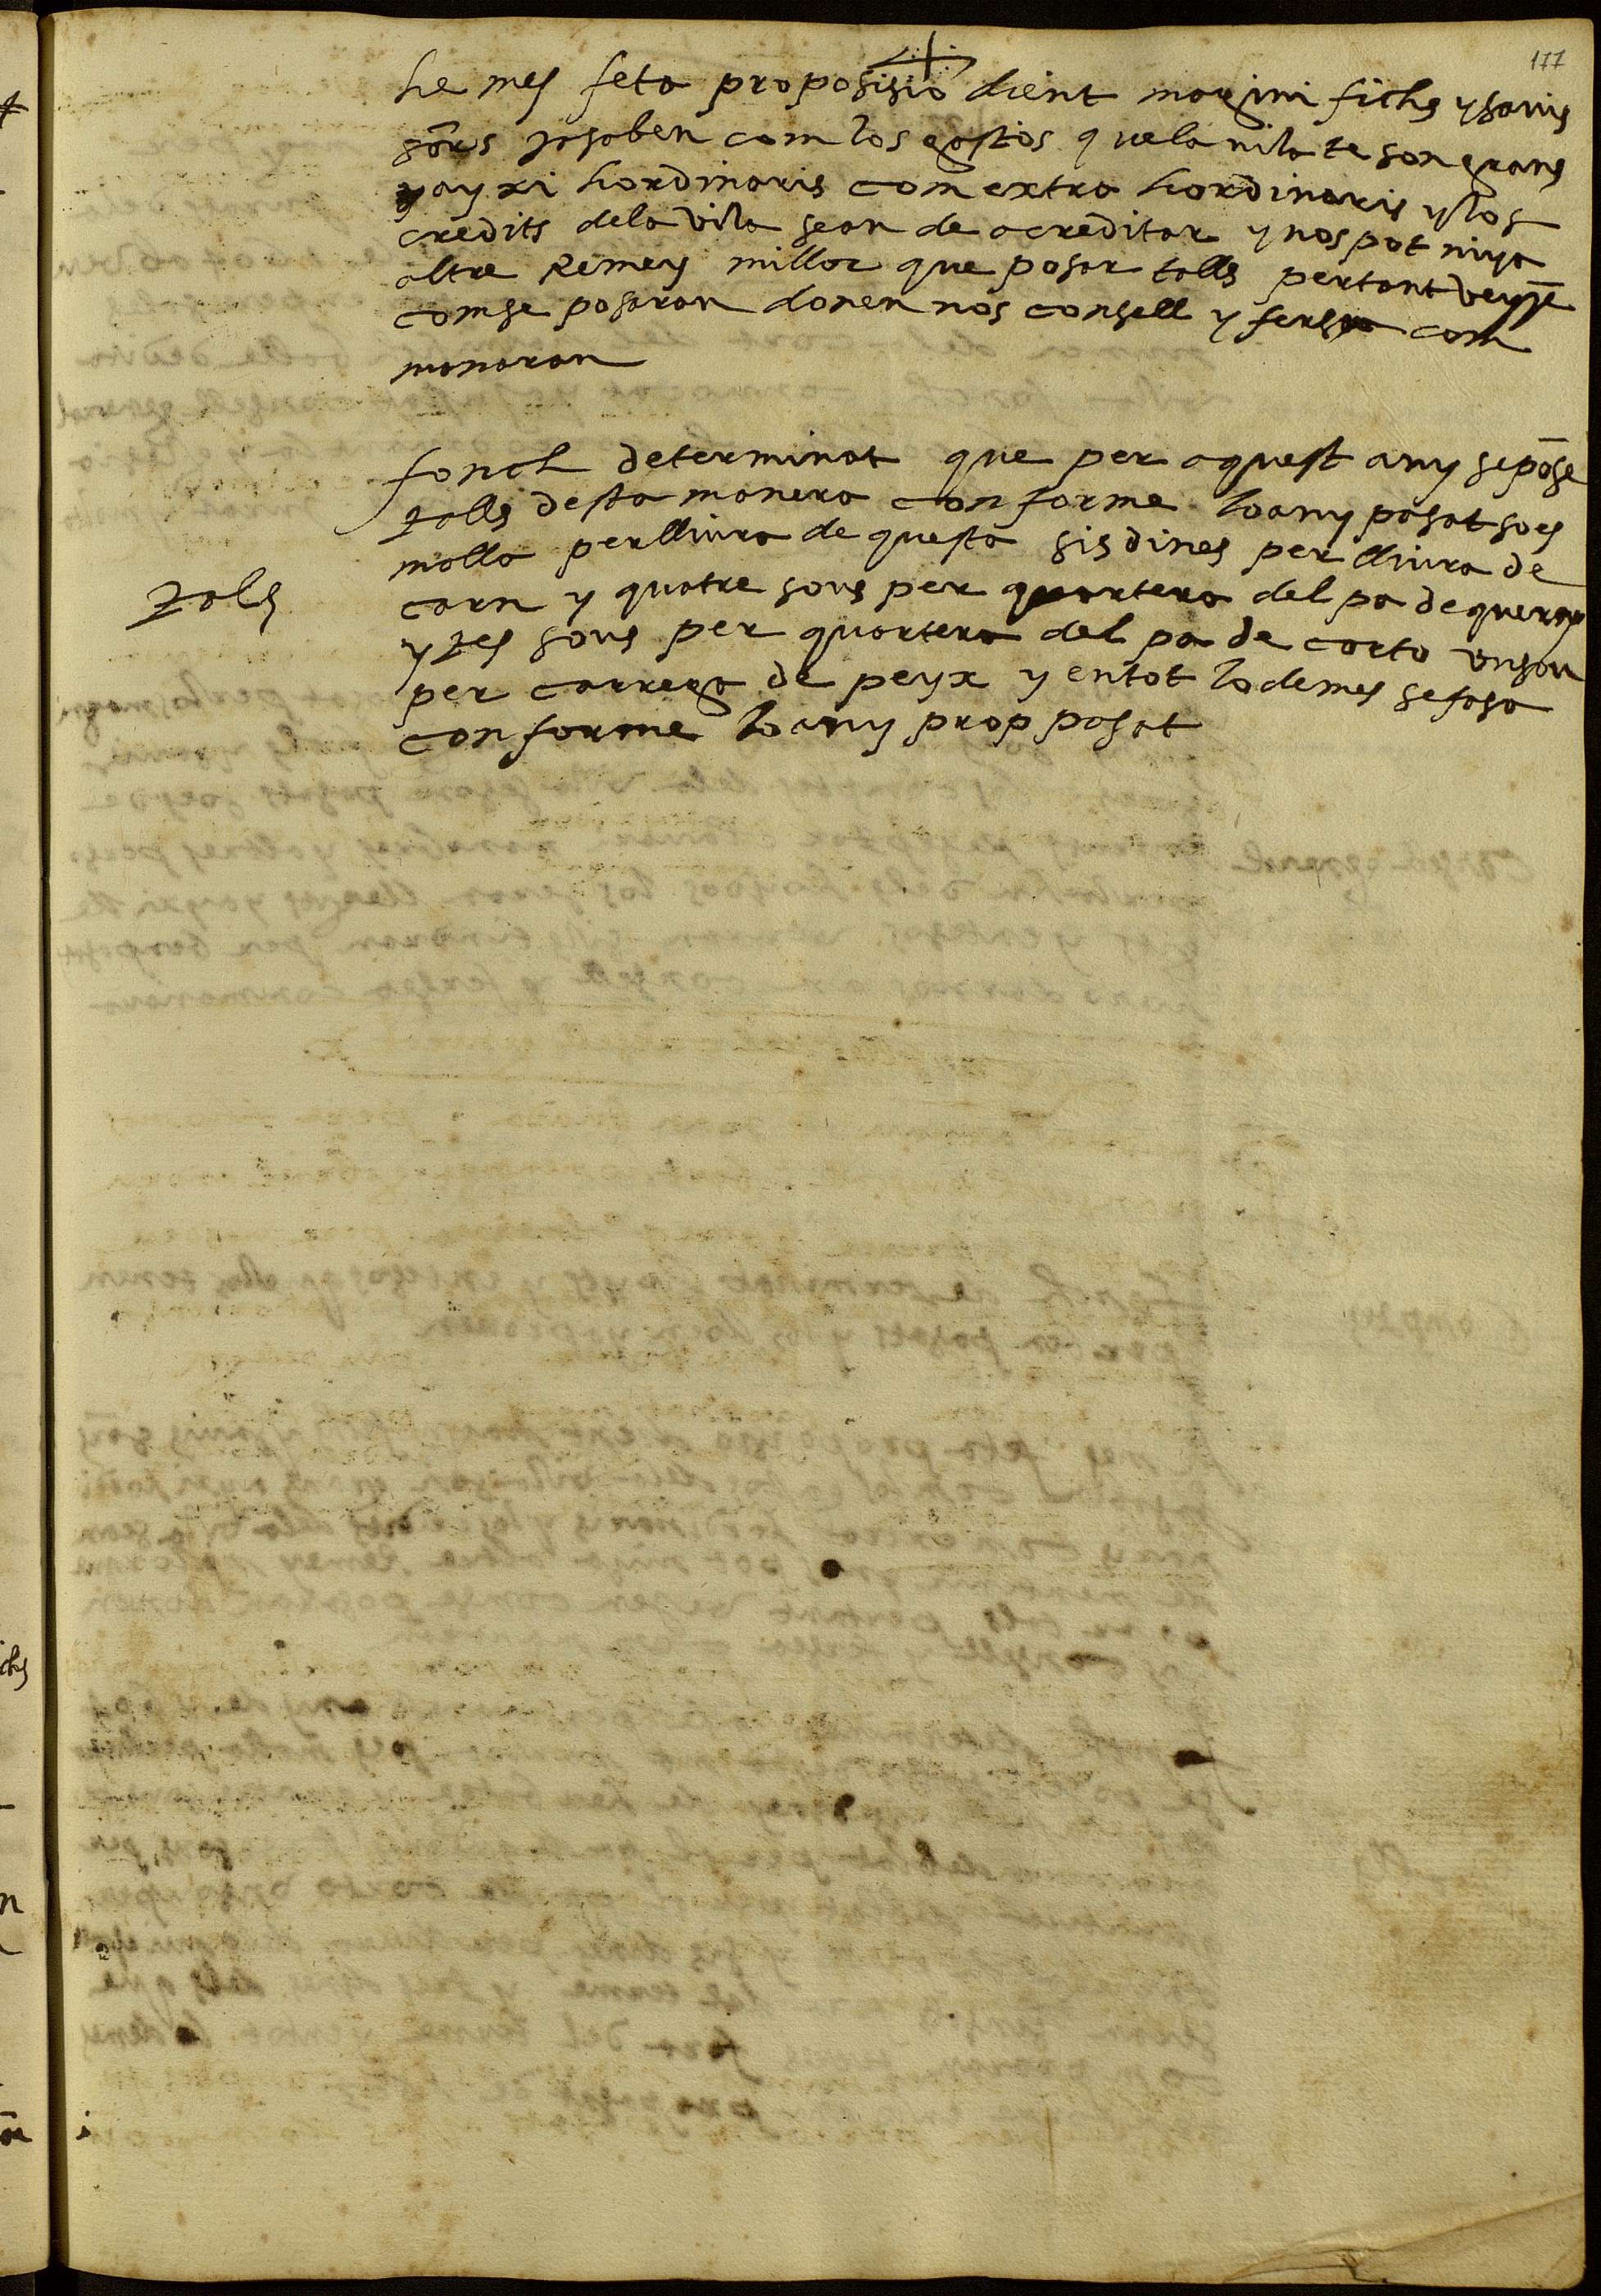 177
he mes feta proposisio dient magini fichs y savis
sors ja saben com los gastos que la vila te son grans
y ayxi hordinaris com extra hordinaris y los
credits de la vila sean de acreditar y nos pot niya
altre Remey millor que posar talls pertant veyē
com se posaran donen nos consell y fersea com
manaran
fonch determinat que per aquest any se pōse
talls desta manera conforme lo any pasat so es
molla per lliura de questa sis dines per lliura de
Tals
carn y quatre sous per quartera del pa de
y tes sous per quartera del pa de carto un sou
per carrega de peyx y en tot lo demes se fasa
conforme lo any prop pasat